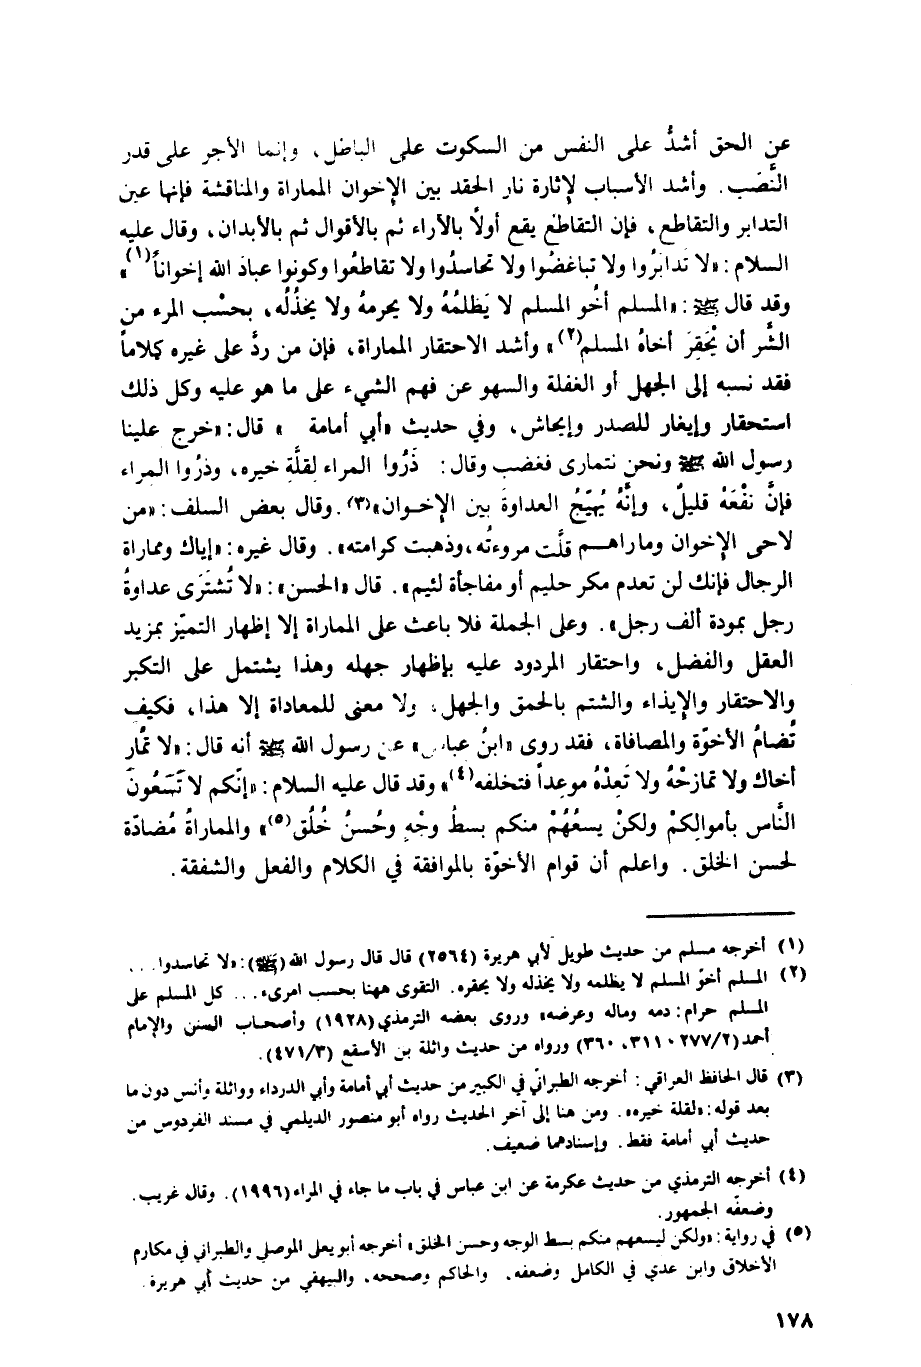 عن الحق أشدُّ على النفس من السكوت على الباطل، وإنما الأجر على قدر
النَّصَب. وأشد الأسباب لإثارة نار الحقد بين الإخوان المماراة والمناقشة فإنها عين
التدابر والتقاطع، فإن التقاطع يقع أولاً بالآراء ثم بالأقوال ثم بالأبدان، وقال عليه
السلام: «لا تَدابَرُوا ولا تباغضُوا ولا تحاسدُوا ولا تقاطعُوا وكونوا عبادَ الله إخواناً(١)»
وقد قال ﷺ: «المسلم أخُو المسلم لا يَظلمُهُ ولا يحرمهُ ولا يخذُلُه، بحسْب المرء من
الشَّر أن يُحَقِرَ أخاهُ المسلم(٢)» وأشد الاحتقار المماراة، فإن من ردَّ على غيره كلاماً
فقد نسبه إلى الجهل أو الغفلة والسهو عن فهم الشيء على ما هو عليه وكل ذلك
استحقار وإيغار للصدر وإيحاش، وفي حديث «أبي أمامة » قال: «خرج علينا
رسول الله ﷺ ونحن نتمارى فغضب وقال: ذَرُوا المراء لقلَّةِ خيره، وذرُوا المراء
فإنَّ نفْعَهُ قليلٌ، وإنَّهُ يُهيّجُ العداوةَ بين الإخـوان»(٣). وقال بعض السلف: «من
لاحى الإخوان وماراهـم قلَّت مروءتُه، وذهبت كرامته». وقال غيره: «إياك ومماراة
الرجال فإنك لن تعدم مكر حليم أو مفاجأة لئيم». قال «الحسن»: «لا تُشتَرَى عداوةُ
رجل بمودة ألف رجل». وعلى الجملة فلا باعث على المماراة إلا إظهار التميّز بمزيد
العقل والفضل، واحتقار المردود عليه بإظهار جهله وهذا يشتمل على التكبر
والاحتقار والإيذاء والشتم بالحمق والجهل، ولا معنى للمعاداة إلا هذا، فكيف
تُضامُ الأخوّة والمصافاة، فقد روى «ابنُ عباس» عن رسول الله ﷺ أنه قال: «لا تُمار
أخاك ولا تمازحْهُ ولا تَعِدْهُ موعداً فتخلفه(٤)» وقد قال عليه السلام: «إنّكم لا تَسَعُونَ
النَّاس بأموالِكمْ ولكنْ يسعُهُمْ منكم بسطُ وجْهٍ وحُسنُ خُلُق(٥)» والمماراةُ مُضادّة
لحسن الخلق. واعلم أن قوام الأخوّة بالموافقة في الكلام والفعل والشفقة.
(١) أخرجه مسلم من حديث طويل لأبي هريرة (٢٥٦٤) قال قال رسول الله (ﷺ): «لا تحاسدوا...
(٢) المسلم أخو المسلم لا يظلمه ولا يخذله ولا يحقره. التقوى ههنا بحسب امرىء... كل المسلم على
المسلم حرام: دمه وماله وعرضه» وروى بعضه الترمذي (١٩٢٨) وأصحاب السنن والإمام
أحمد (٢/٢٧٧، ٣١١، ٣٦٠) ورواه من حديث واثلة بن الأسقع (٣/٤٧١).
(٣) قال الحافظ العراقي: أخرجه الطبرانّي في الكبير من حديث أبي أمامة وأبي الدرداء وواثلة وأنس دون ما
بعد قوله: «لقلة خيره». ومن هنا إلى آخر الحديث رواه أبو منصور الديلمي في مسند الفردوس من
حديث أبي أمامة فقط. وإسنادهما ضعيف.
(٤) أخرجه الترمذي من حديث عكرمة عن ابن عباس في باب ما جاء في المراء (١٩٩٦). وقال غريب.
وضعفه الجمهور.
(٥) في رواية: «ولكن ليسعهم منكم بسط الوجه وحسن الخلق» أخرجه أبو يعلى الموصلي والطبراني في مكارم
الأخلاق وابن عدي في الكامل وضعفه. والحاكم وصححه، والبيهقي من حديث أبي هريرة.
١٧٨